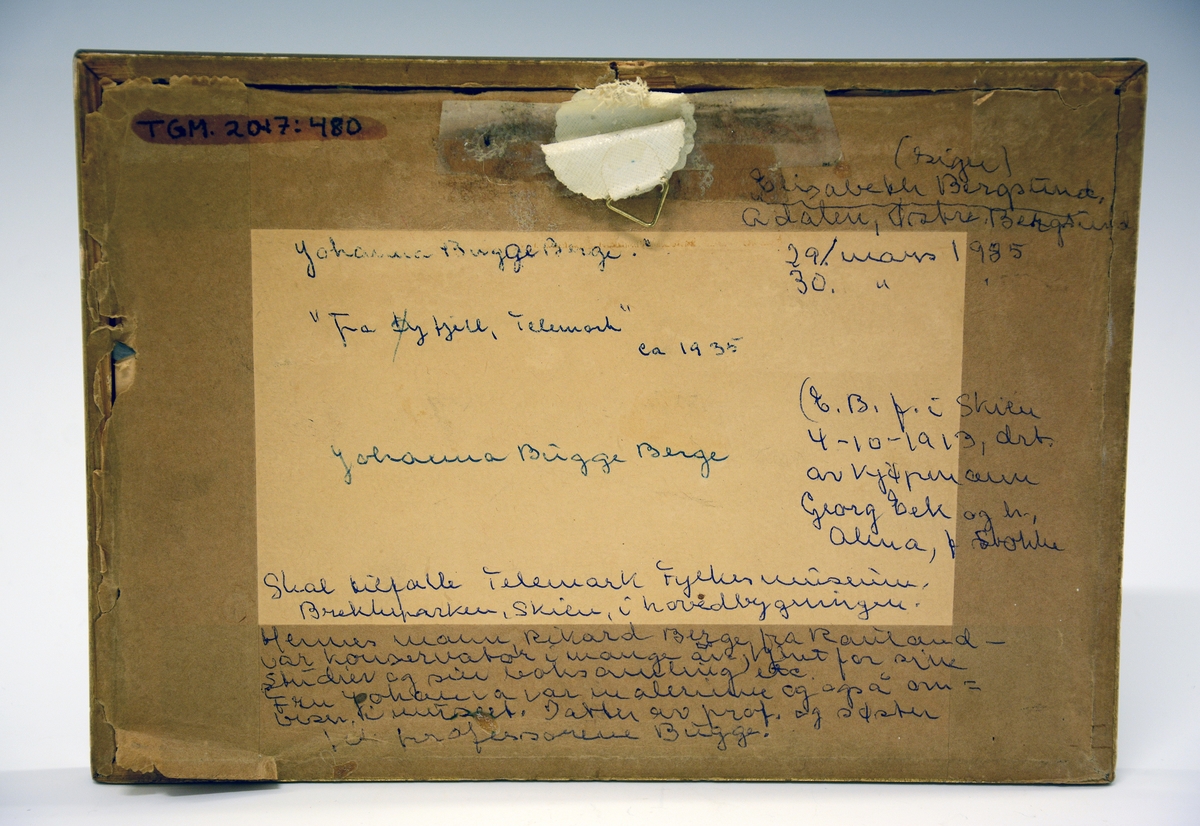 TGM. 2017:480
(Eiger)
Elisabeth Bergstund,
Ådalen, Østre Bergsund
Johanna Bugge Berge."
29/mars 1935
30. " "
"Fra Øyfjell, Telemark"
ca 1935
Johanna Bugge Berge
(E. B. f. i Skien
4-10-1913, dtr.
av kjøpmann
Georg Eek og h.,
Alina, f Stokke
Skal tilfalle Telemark Fylkesmuseum,
Brekkeparken, Skien, i hovedbygningen.
Hennes mann, Rikard Berge fra Rauland –
var konservator i mange år, kjent for sine
studier og sin boksamling etc.
Fru Johanna var malerinne og også om=
viser i museet. Datter av prof. og søster
til professorene Bugge.